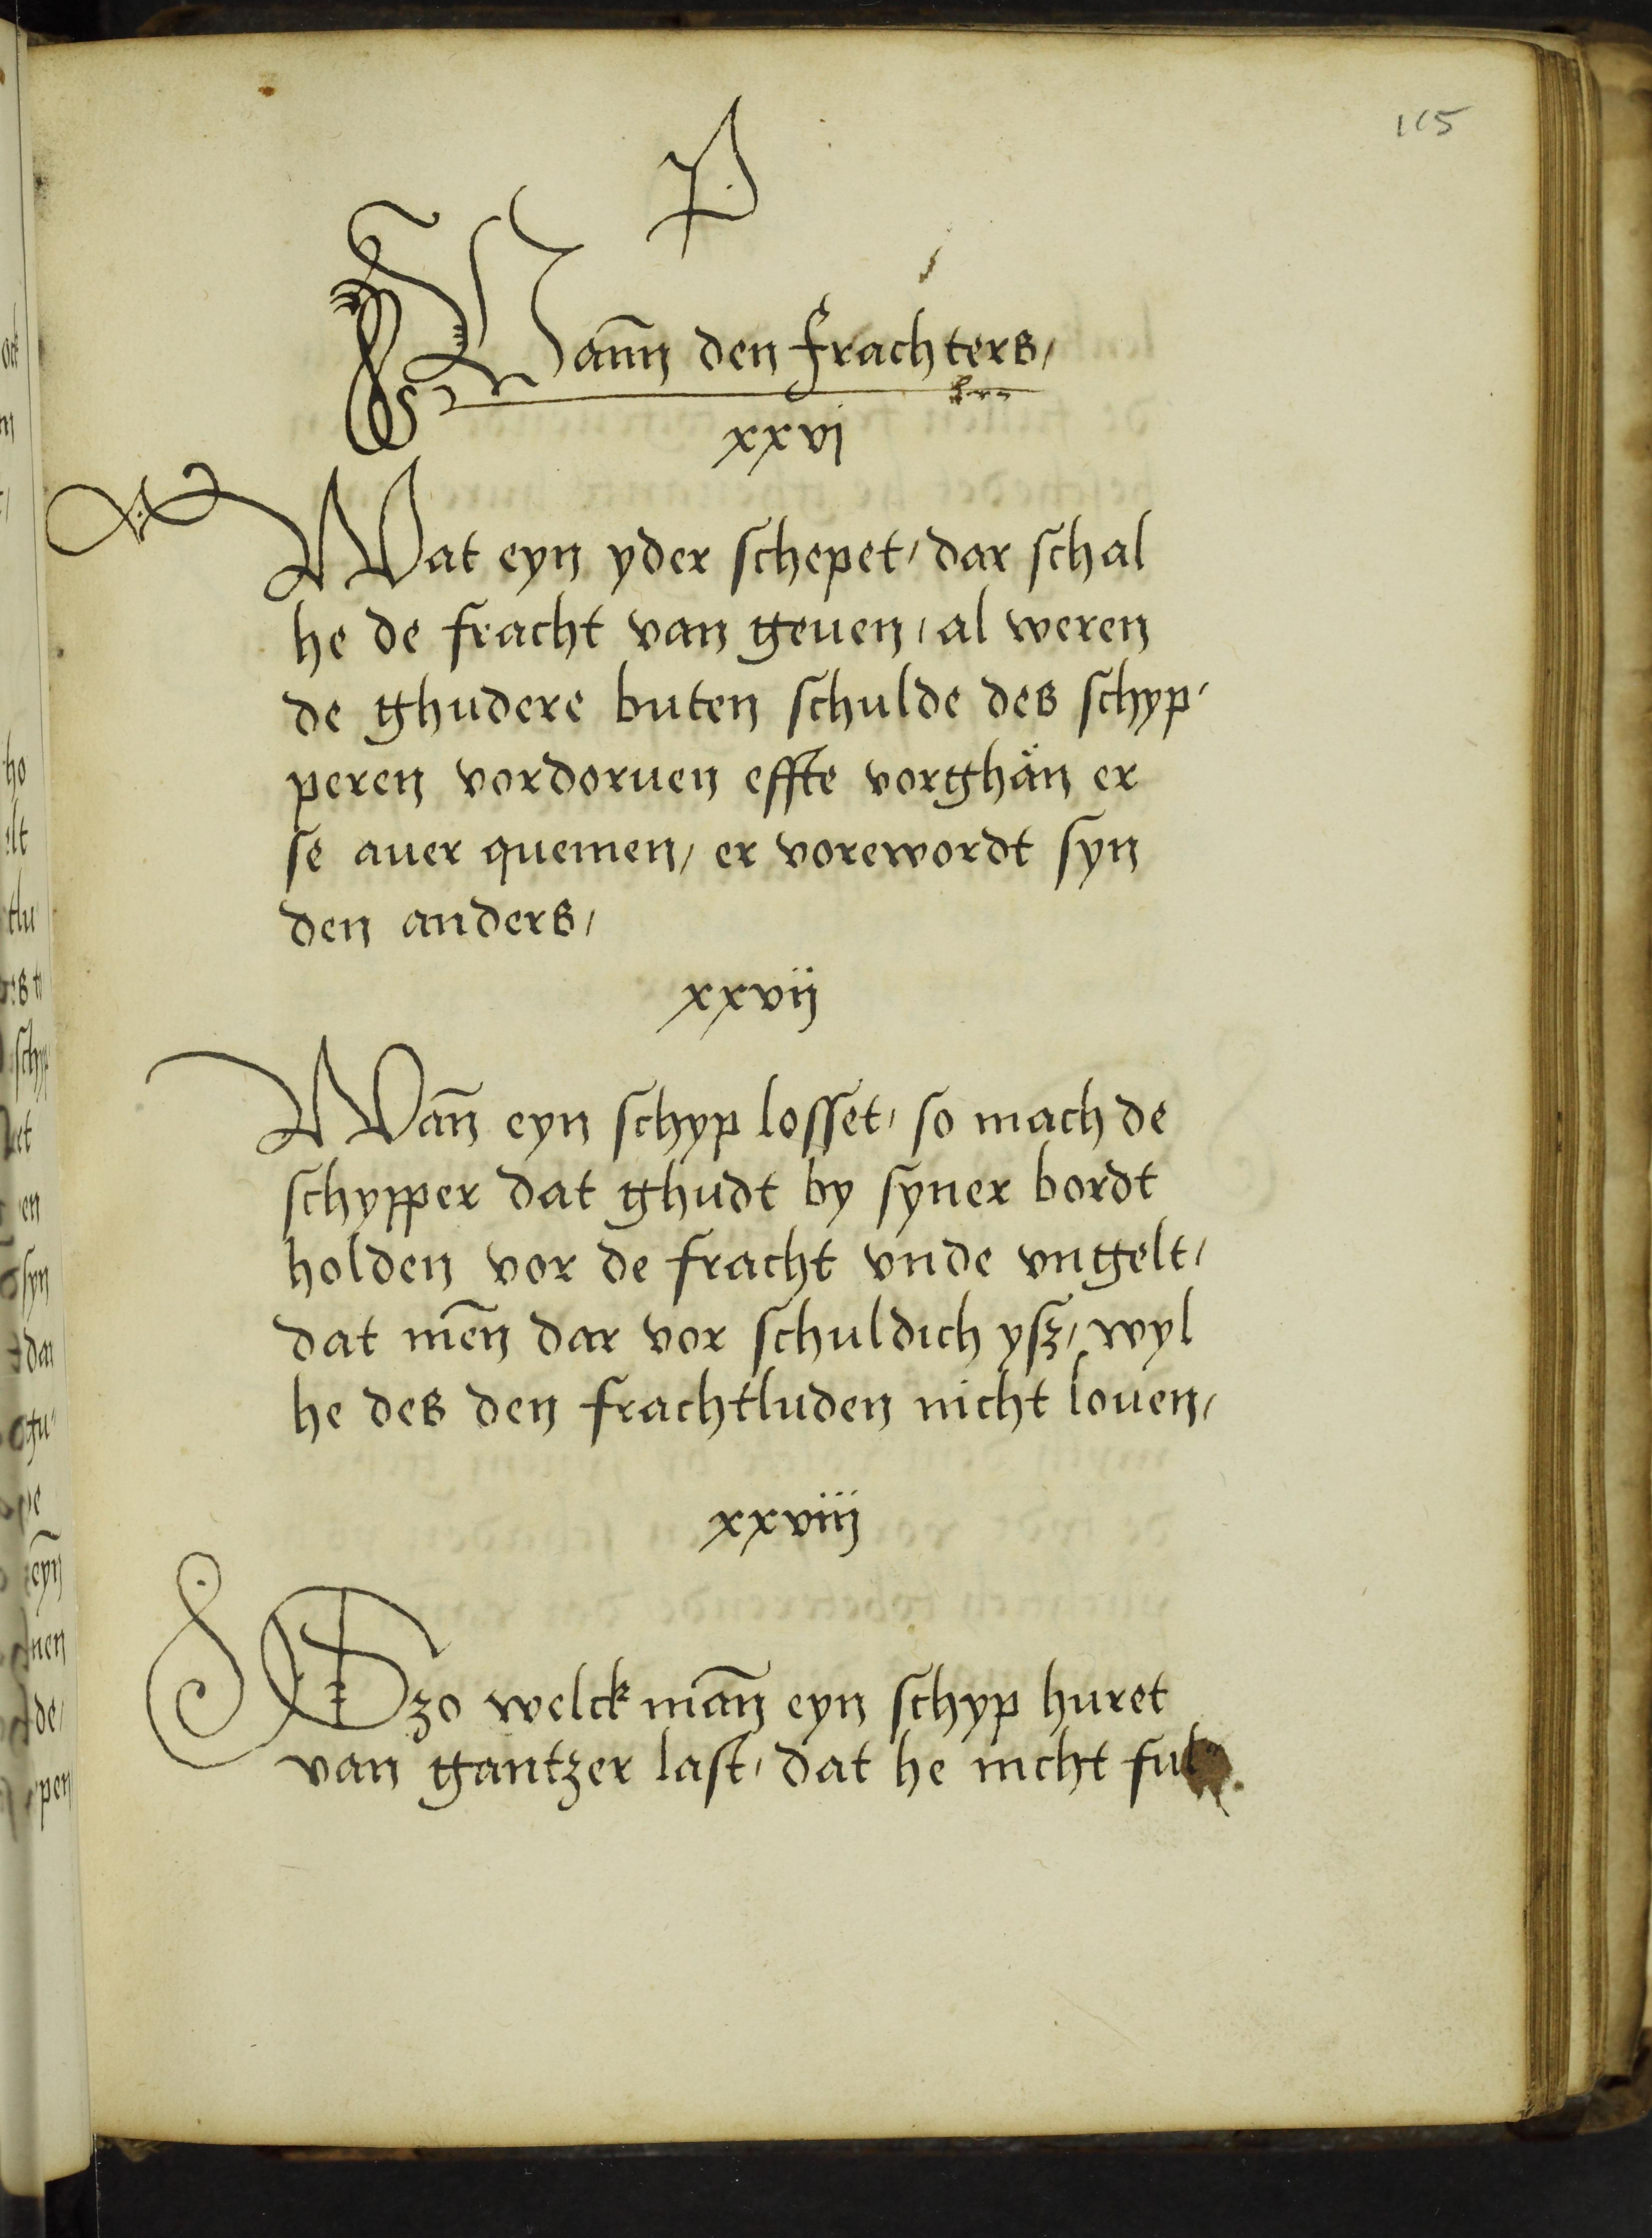 115
P
Vann den frachters/
xxvj
Wat eyn yder schepet/ dar schal
he de fracht van geuen/ al weren
de ghudere buten schulde des schyp/
peren vordoruen effte vorghän er
se auer quemen/ er vorewordt syn
den anders/
xxvij
Wan̄ eyn schyp losset/ so mach de
schypper dat ghudt by syner bordt
holden vor de fracht vnde vngelt/
dat men̄ dar vor schuldich ysz/ wyl
he des den frachtluden nicht louen/
xxviij
Szo welck man̄ eyn schyp huret
van gantzer last/ dat he nicht ful